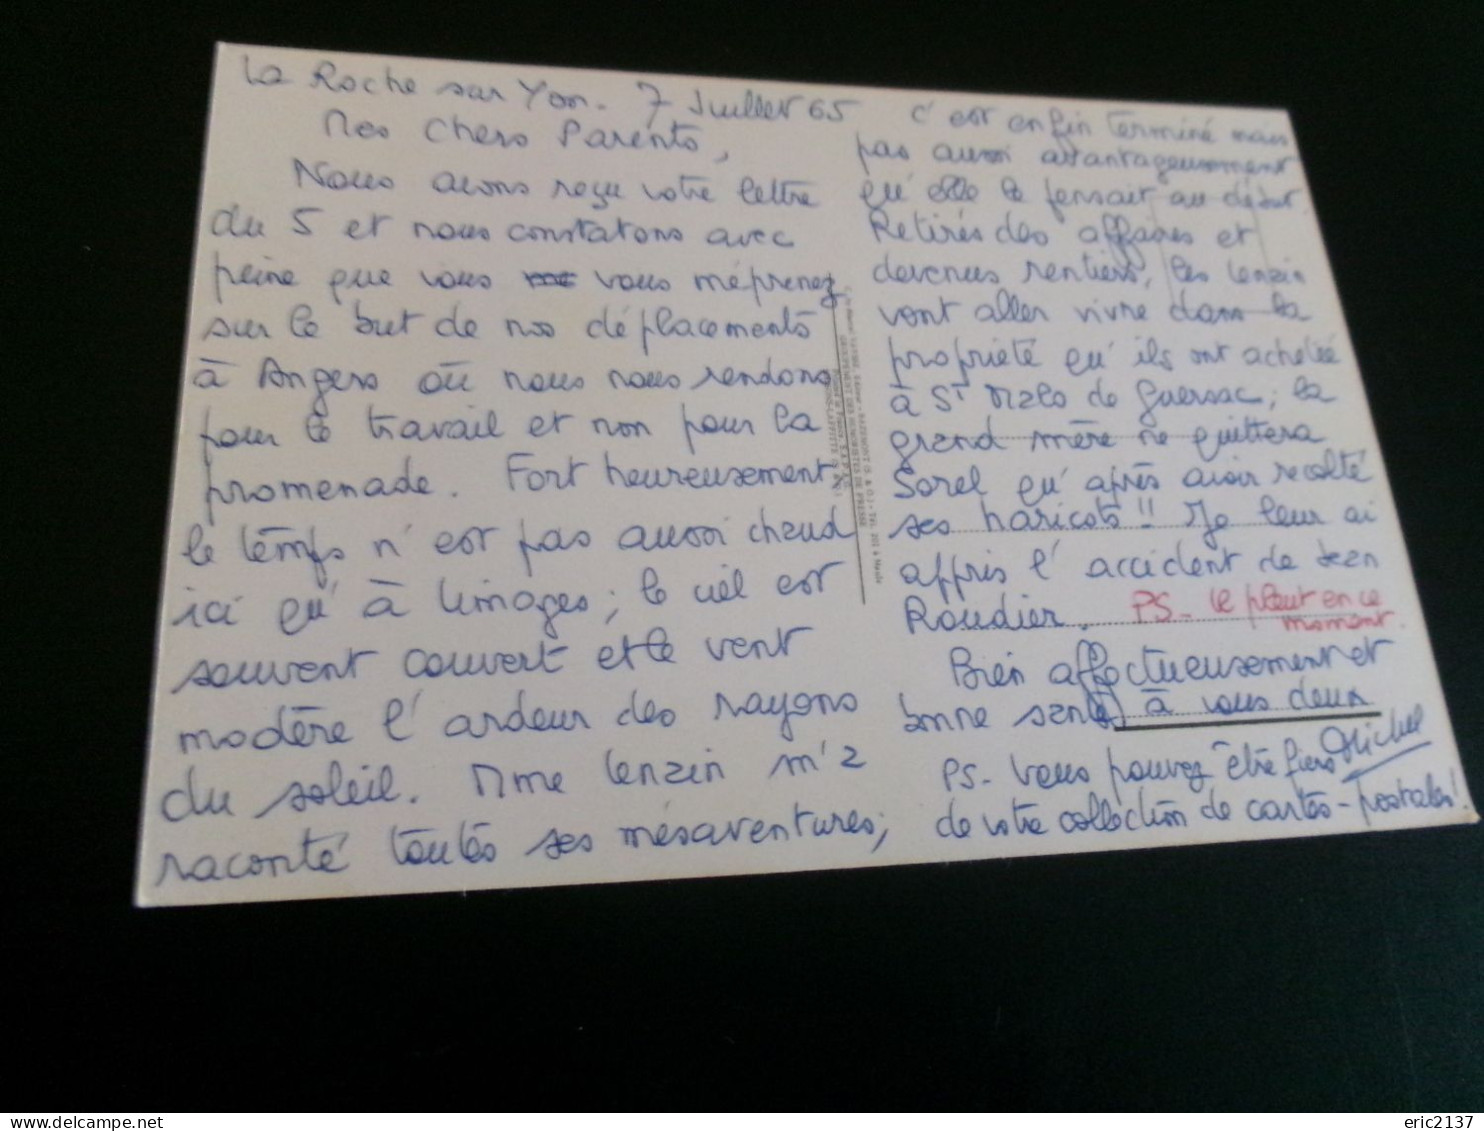 La Roche sur Yon. 7 Juillet 65
Mes Chers Parents,
Nous avons reçu votre lettre
du 5 et nous constatons avec
peine que vous vous méprenez
sur le but de nos déplacements
à Angers où nous nous rendons
pour le travail et non pour la
promenade. Fort heureusement
le temps n'est pas aussi chaud
ici qu'à Limoges ; le ciel est
souvent couvert et le vent
modère l'ardeur des rayons
du soleil. Mme Lenzin m'a
raconté toutes ses mésaventures ;
c'est enfin terminé mais
pas aussi avantageusement
qu'elle le pensait au début.
Retirés des affaires et
devenus rentiers, les Lenzin
vont aller vivre dans la
propriété qu'ils ont achetée
à St Malo de Guersac ; la
grand mère ne quittera
Sorel qu'après avoir recolté
ses haricots !! Je leur ai
appris l'accident de Jean
Roudier. PS_ Le pleut en ce
moment.
Bien affectueusement et
bonne santé à vous deux
Michel
PS- Vous pouvez être fiers
de votre collection de cartes-postales !
eric2137